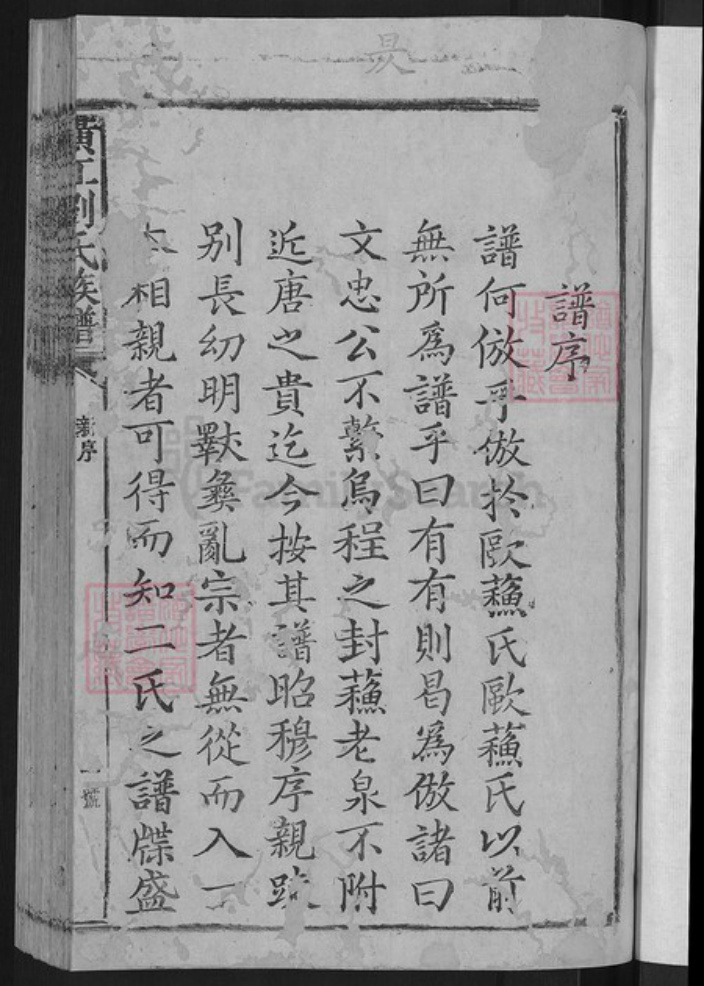 譜序
譜何倣乎倣扵歐蘓氏歐蘓氏以前
無所爲譜乎曰有有則曷爲倣諸曰
文忠公不繫烏程之封蘓老泉不附
近唐之貴迄今按其譜昭穆序親踈
别長幼明斁彝亂宗者無從而入一
本相親者可得而知二氏之譜牒盛
劉氏族譜
新序
一號
FamilySearch